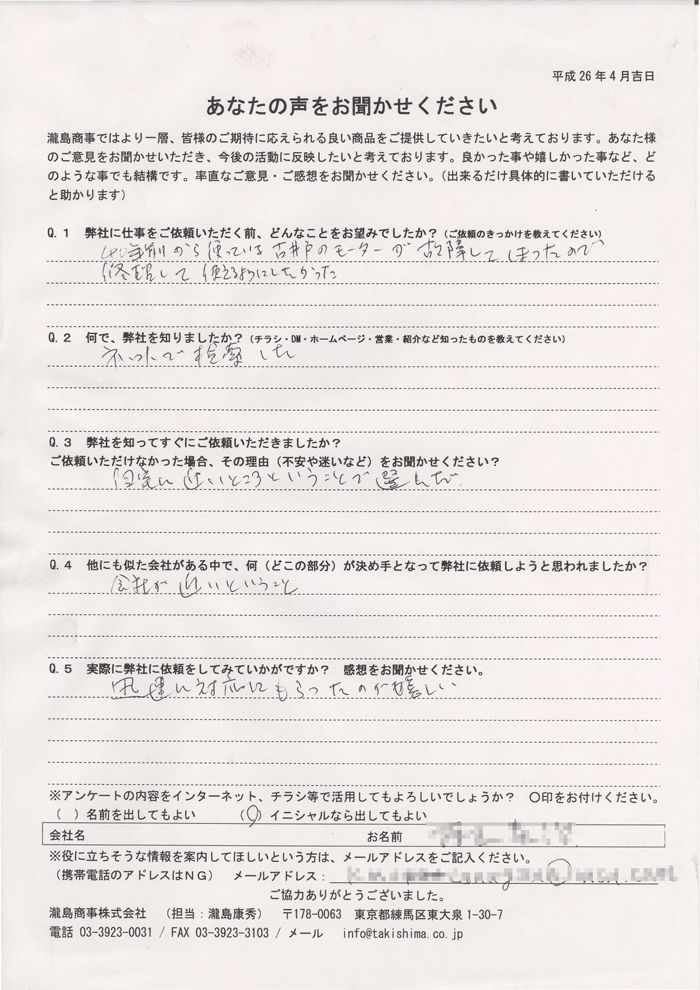 平成26年4月吉日
あなたの声をお聞かせください
瀧島商事ではより一層、皆様のご期待に応えられる良い商品をご提供していきたいと考えております。あなた様
のご意見をお聞かせいただき、今後の活動に反映したいと考えております。良かった事や嬉しかった事など、ど
のような事でも結構です。率直なご意見・ご感想をお聞かせください。（出来るだけ具体的に書いていただける
と助かります）
Q.1 弊社に仕事をご依頼いただく前、どんなことをお望みでしたか？（ご依頼のきっかけを教えてください）
40年前から使っている古井戸のモーターが故障してしまったので
修理して使えるようにしたかった
Q.2 何で、弊社を知りましたか？（チラシ・DM・ホームページ・営業・紹介など知ったものを教えてください）
ネットで検索した
Q.3 弊社を知ってすぐにご依頼いただきましたか？
ご依頼いただけなかった場合、その理由（不安や迷いなど）をお聞かせください？
自宅に近いところということで選んだ
Q.4 他にも似た会社がある中で、何（どこの部分）が決め手となって弊社に依頼しようと思われましたか？
会社が近いということ
Q.5 実際に弊社に依頼をしてみていかがですか？ 感想をお聞かせください。
迅速に対応してもらったのが嬉しい
※アンケートの内容をインターネット、チラシ等で活用してもよろしいでしょうか？ 〇印をお付けください。
（ ）名前を出してもよい （〇）イニシャルなら出してもよい
会社名 お名前
※役に立ちそうな情報を案内してほしいという方は、メールアドレスをご記入ください。
（携帯電話のアドレスはNG） メールアドレス：
ご協力ありがとうございました。
瀧島商事株式会社 （担当：瀧島康秀） 〒178-0063 東京都練馬区東大泉1-30-7
電話 03-3923-0031 / FAX 03-3923-3103 / メール info@takishima.co.jp